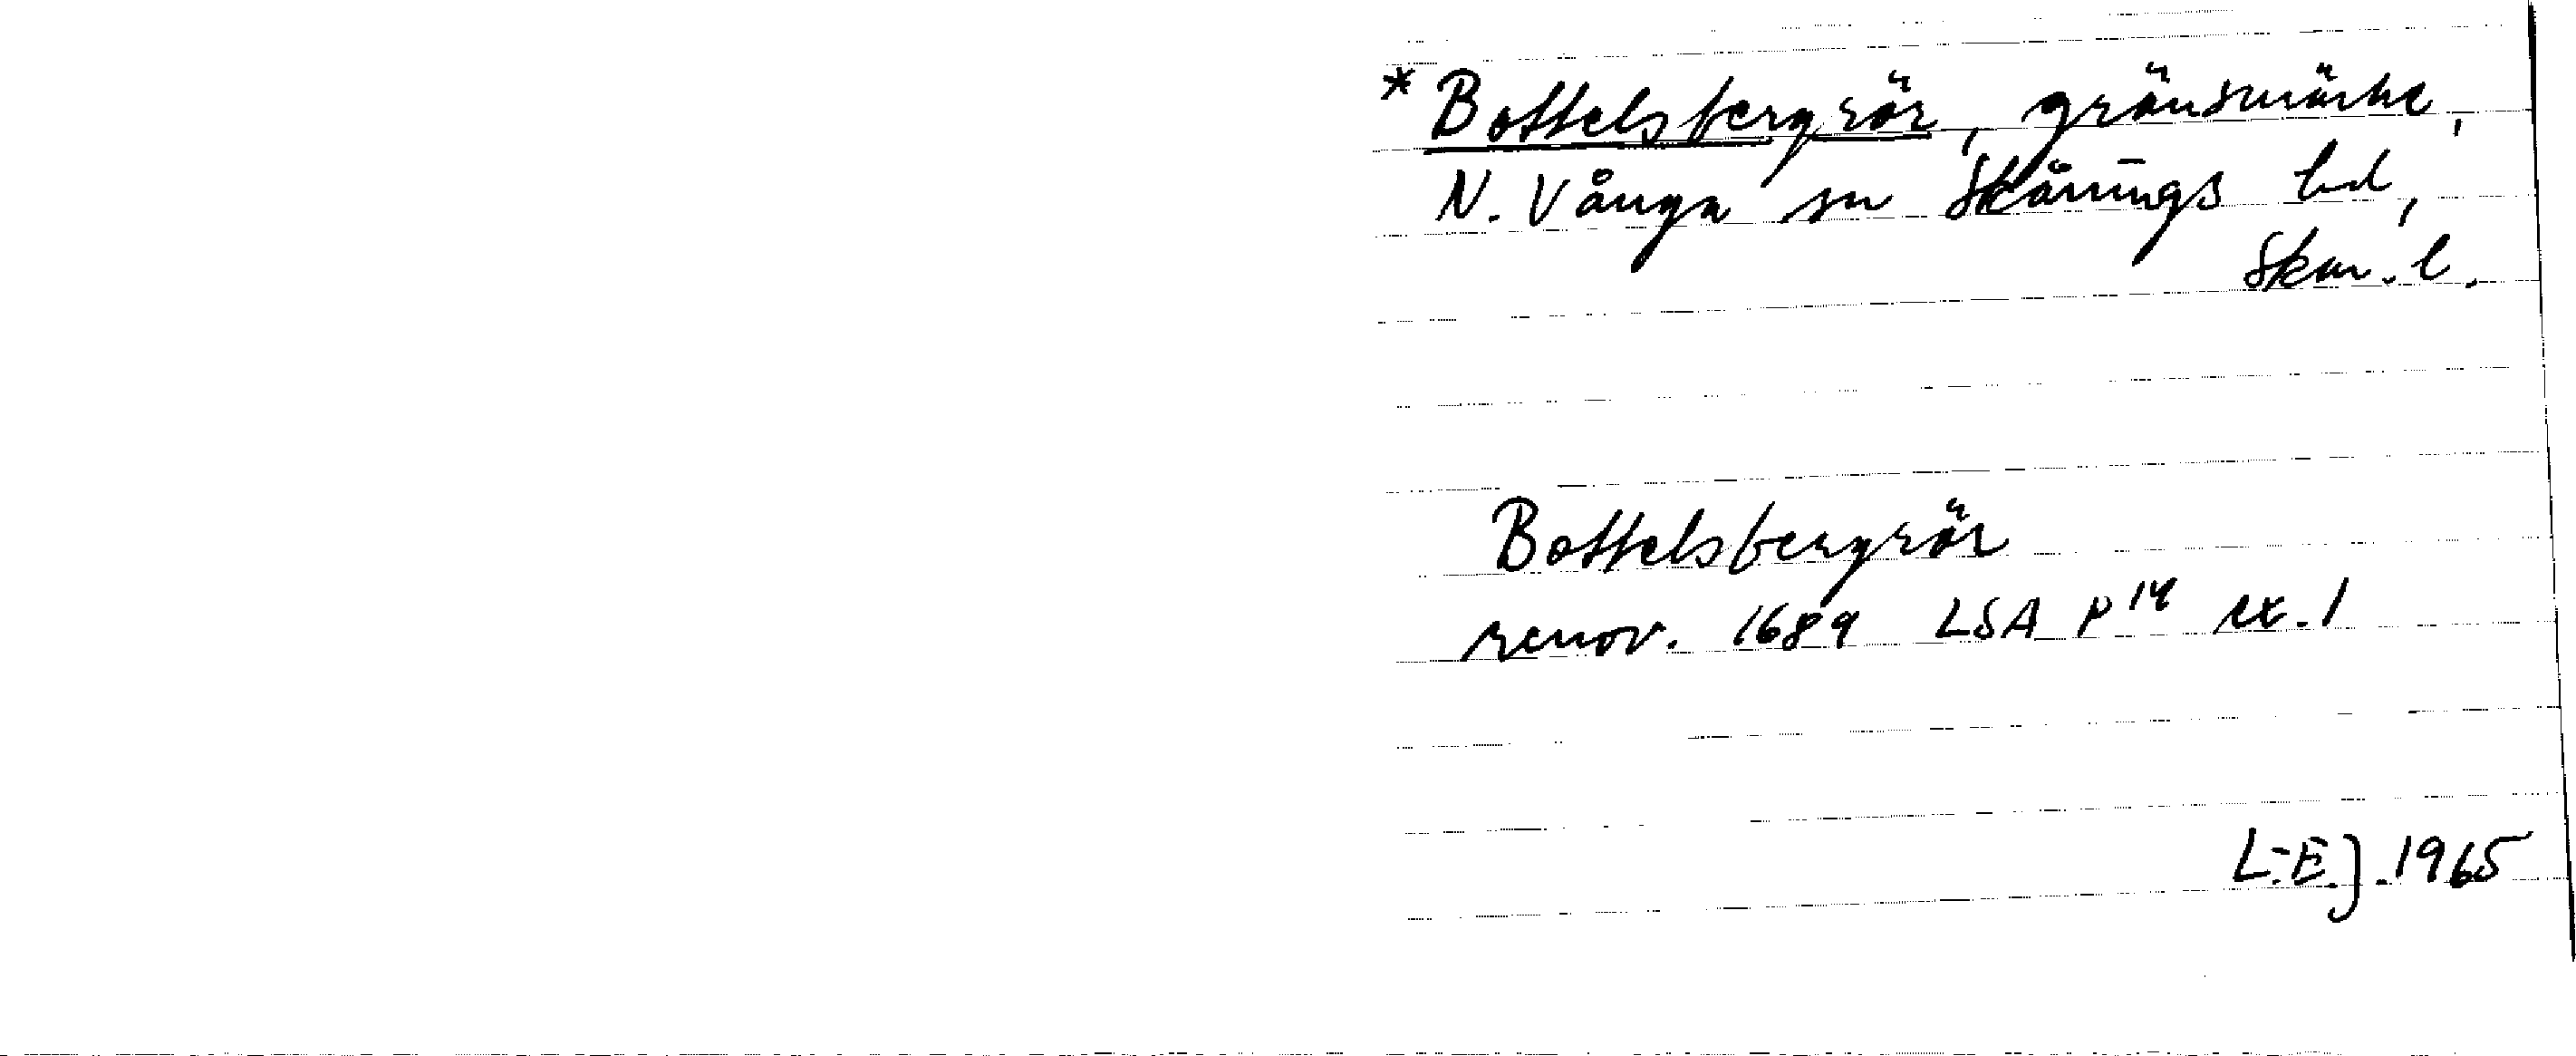 * Bottelsbergrör, gränsmärke,
N. Vånga sn Skånings hd,
Skar. l.
Bottelsbergrör
renov. 1689 LSA P 14 ex. 1
L.-E. J. 1965